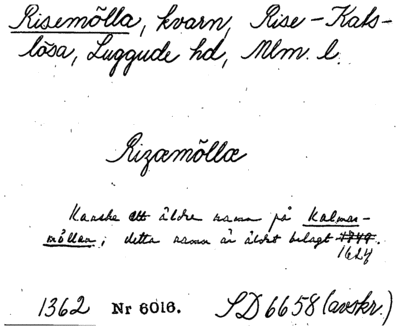 Risemölla, kvarn, Rise-Kats-
lösa, Luggude hd, Mlm. l.
Rizæmöllæ
Kanske ett äldre namn på Kalmar-
möllan; detta namn är äldst belagt 1749.
1624
1362 Nr 6016. SD 6658 (avskr.)